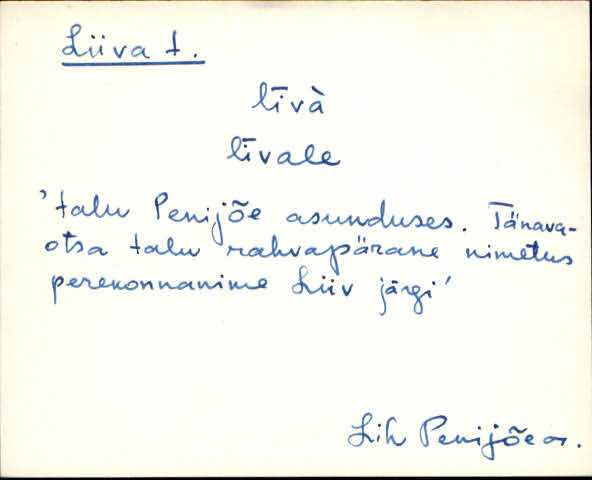 Liiva t.
līvà
līvale
'talu Penijõe asunduses. Tänava-
otsa talu rahvapärane nimetus
perekonnanime Liiv järgi'
Lih Penijõe as.